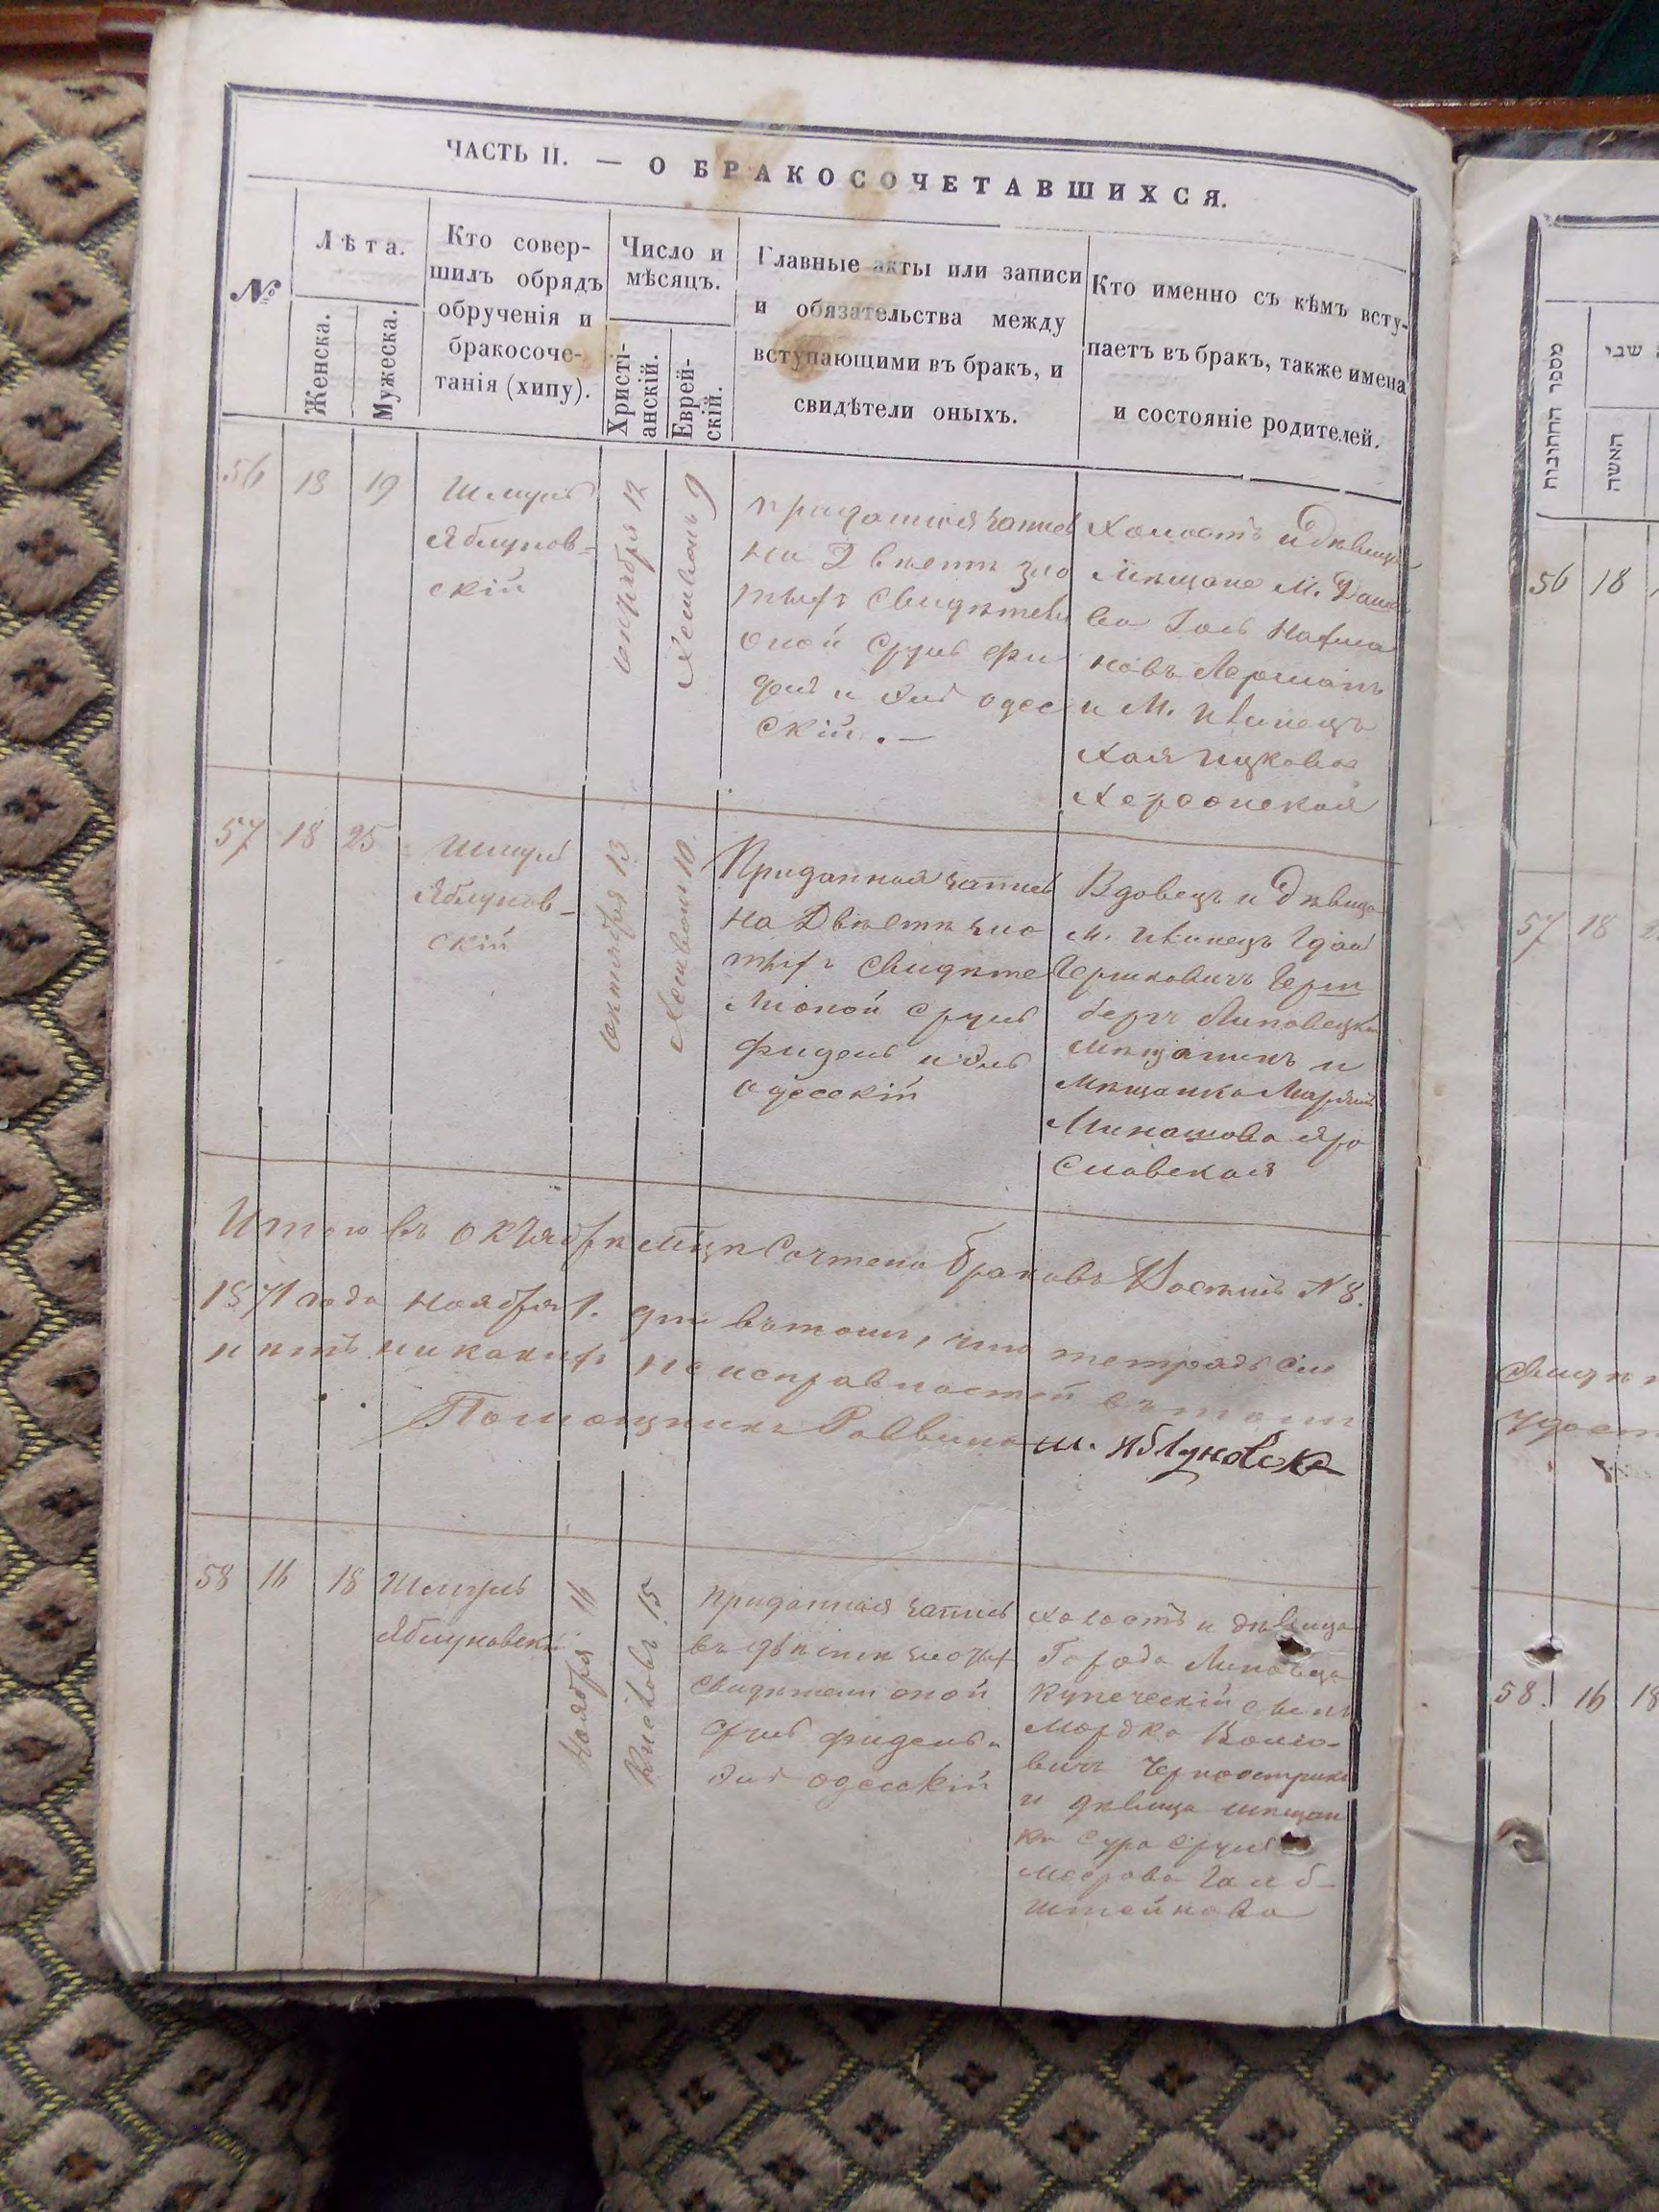 ЧАСТЬ II. — О БРАКОСОЧЕТАВШИХСЯ.
№
Лѣта.
Женска.
Мужеска.
Кто совер-
шилъ обрядъ
обрученія и
бракосоче-
танія (хипу).
Число и
мѣсяцъ.
Христі-
анскій.
Еврей-
скій.
Главные акты или записи
и обязательства между
вступающими въ бракъ, и
свидѣтели оныхъ.
Кто именно съ кѣмъ всту-
паетъ въ бракъ, также имена
и состояніе родителей.
56
18
19
Шмуль
Яблунов-
скій
октября 12
Хешвонъ 9
приданная запись
на Двѣсти зло
тыхъ свидѣтели
оной Сруль Фи
дель и Эль Одес
скій. —
Холостъ и Дѣвица
Мѣщане М. Даше
ва Іось Нахма
новъ Лерманъ
и М. Илинецъ
Хая Ицкова
Херсонская
57
18
25
Шмуль
Яблунов-
скій
октября 13
Хешвон 10.
Приданная запись
на Двѣсти зло
тыхъ свидѣте
ли оной Сруль
Фидель и Эль
Одесскій
Вдовецъ и Дѣвица
м. Илинецъ
Гершковичъ Герш
бергъ Липовецкій
мѣщанинъ и
мѣщанка
Яро
славская
Итого въ Октябрѣ мѣцѣ Сочтено браковъ Восемь N 8.
1871 года Ноября 1. дня въ томъ, что тетрадь сія
никакихъ неисправностей въ томъ
Помощникъ Раввина Ш. Яблуновск
58
16
18
Шмуль
Яблуновскій
Ноября 16
Кислевъ 15
приданная запись
въ двѣсти злотых
Свидѣтели оной
Сруль Фидель и
Эль Одесскій
холостъ и дѣвица
Города Липовца
купеческій сынъ
Мордко Волько-
вичъ
и дѣвица мѣщан
ка Сура Сруль
Меерова Гольб-
штейнова
מספר החתונות
שבי
האשה
56
18
57
18
58.
16
18